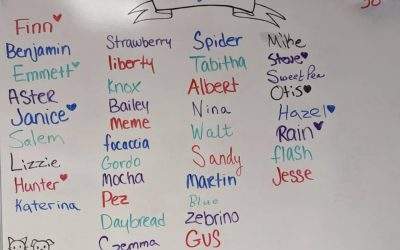 Finn
Benjamin
Emmett
Aster
Janice
Salem
Lizzie
Hunter
Katerina
Strawberry
liberty
Knox
Bailey
Meme
focaccia
Gordo
Mocha
Pez
Daybread
Czemma
Spider
Tabitha
Albert
Nina
Walt
Sandy
Martin
Blue
Zebrino
GUS
Mike
Steve
Sweet Pea
Otis
Hazel
Rain
flash
Jesse